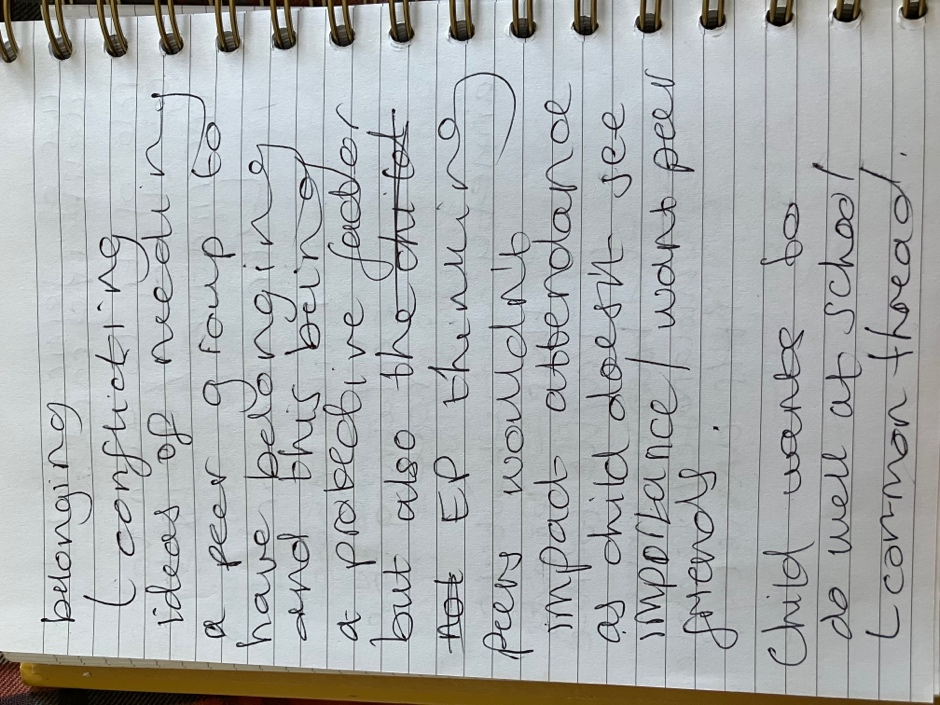 belonging
( conflicting
ideas of needing
a peer group to
have belonging
and this being
a protective factor
but also the child
not EP thinking
peers wouldn't
impact attendance
as child doesn't see
importance / want peer
friends.
Child wants to
do well at school
( common thread.